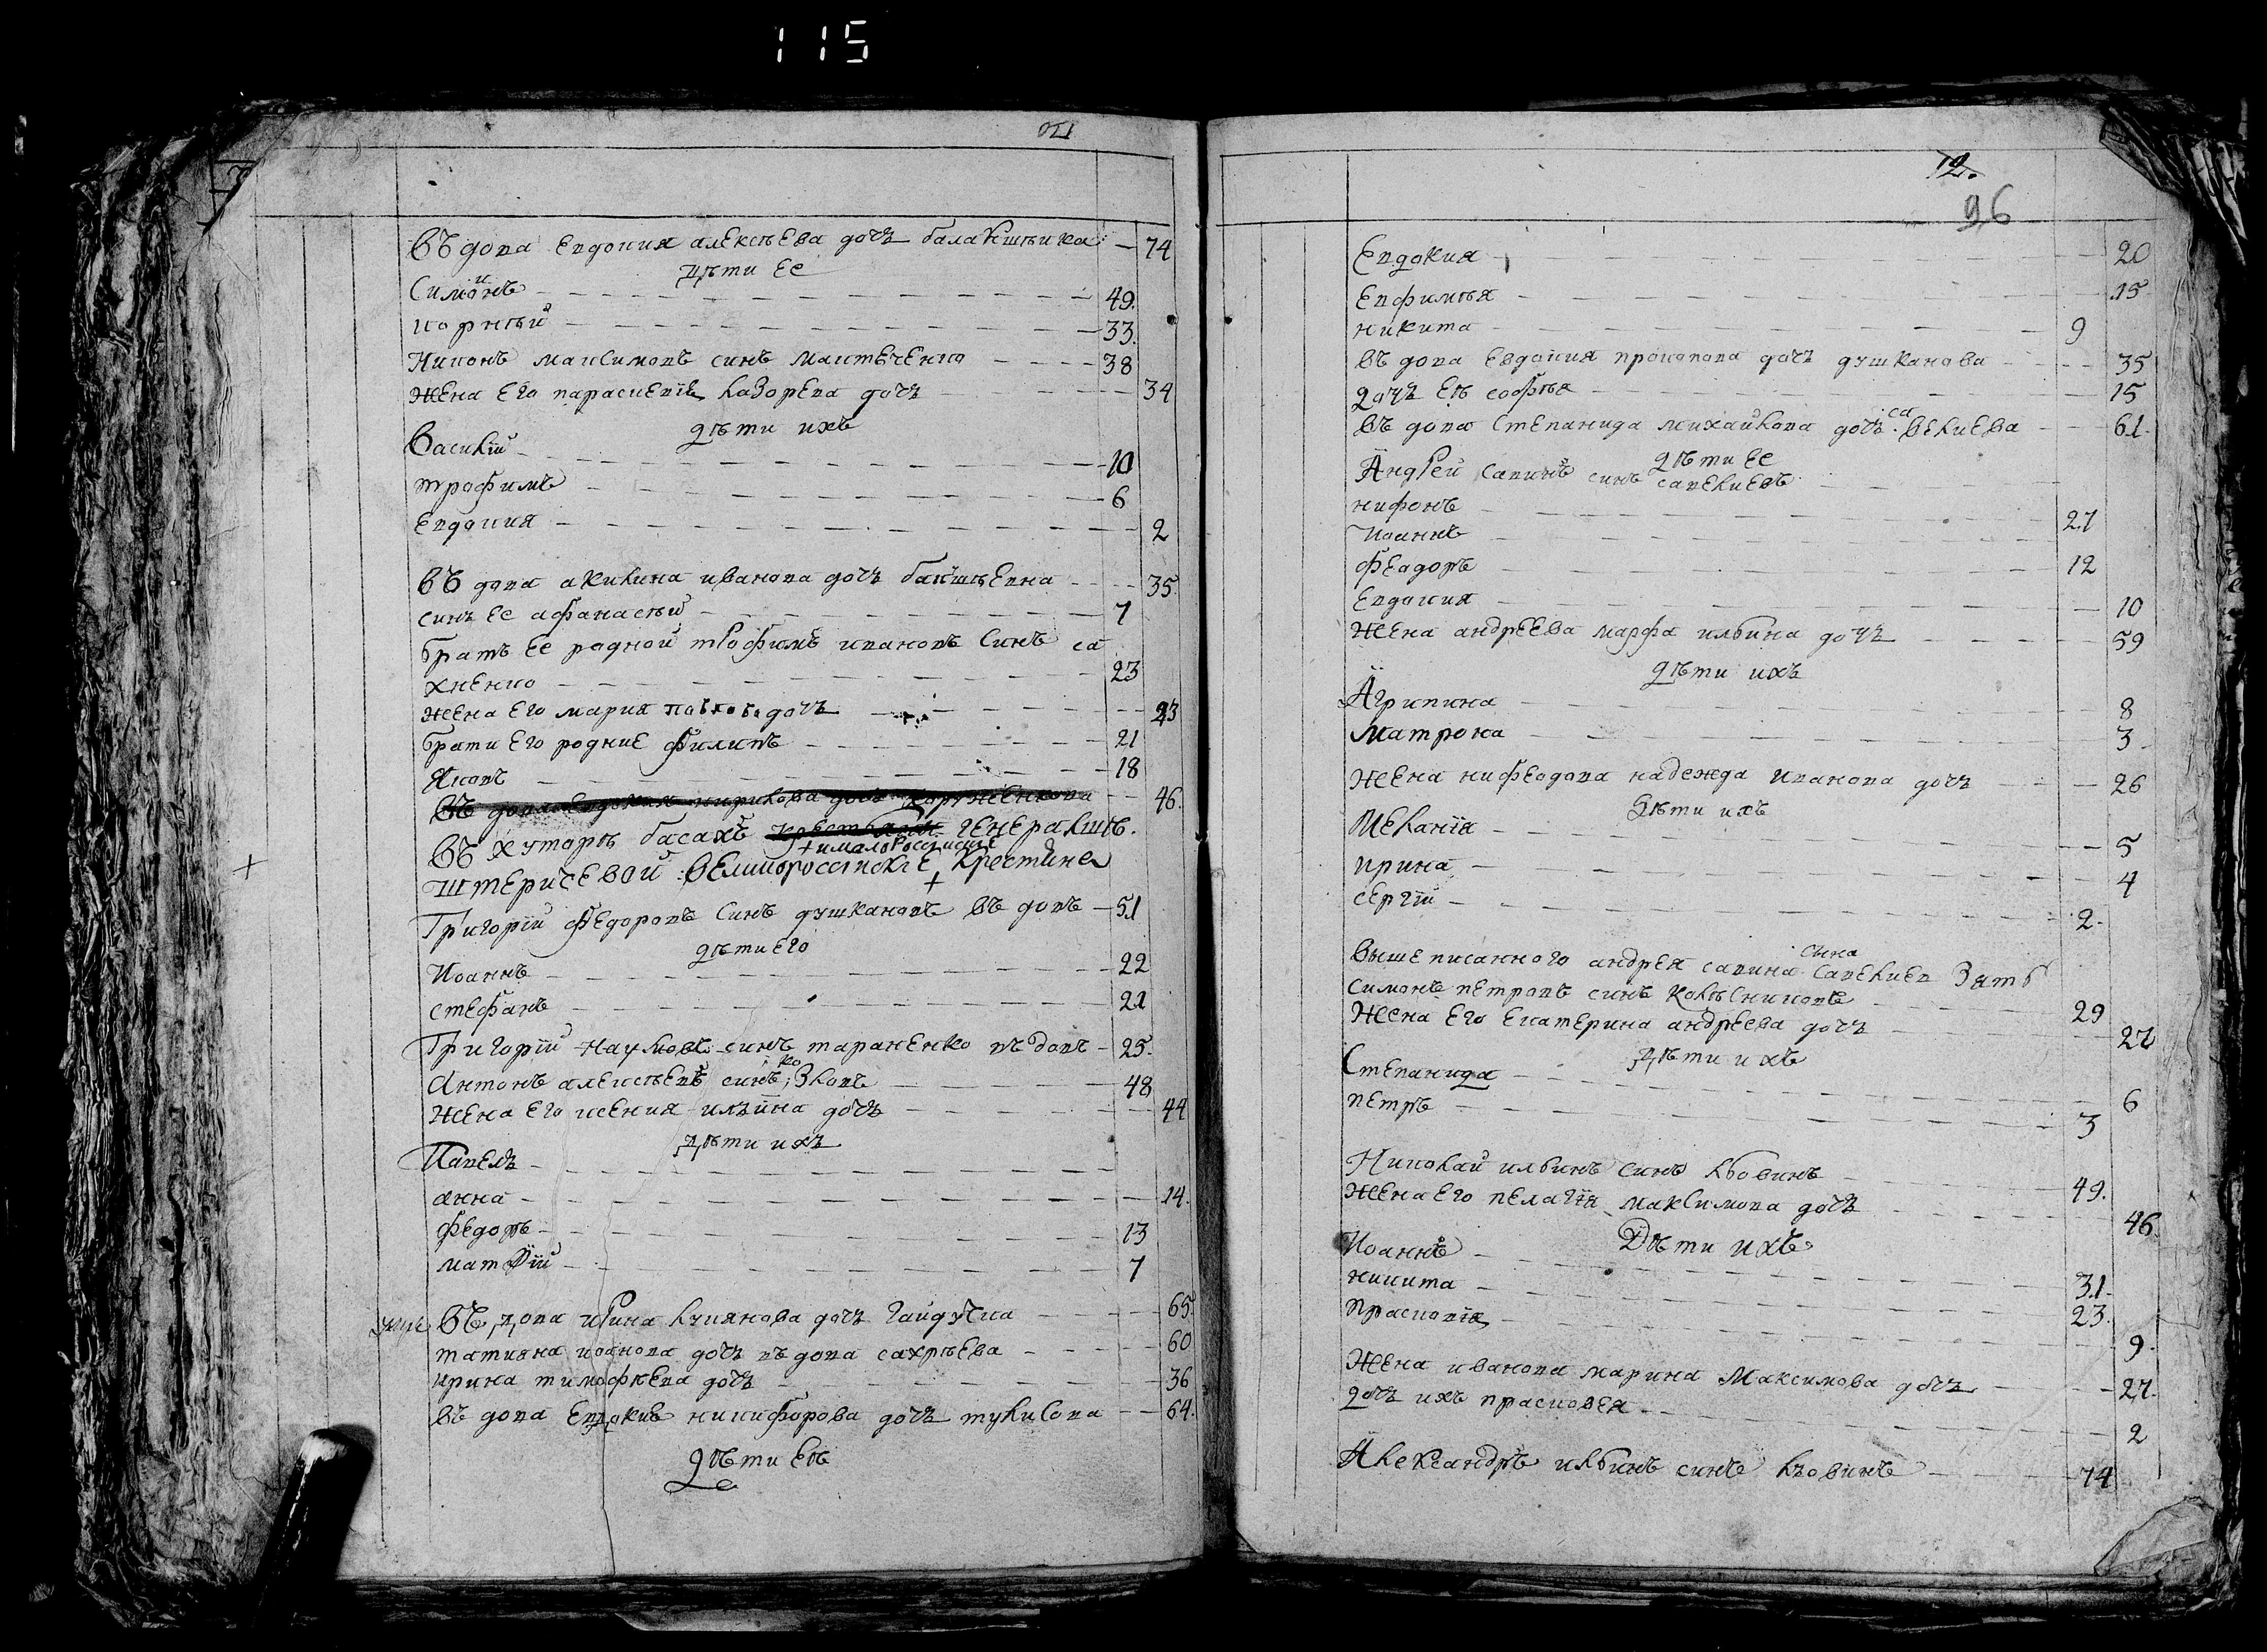 115
въ дова евдокия алексѣева дочъ 74
дѣти ее
Симонъ 49
корнѣй 33
Никонъ максимовъ синъ мантеченко 38
жена его параскевия лазорева дочъ 34
дѣти ихъ
Василій 10
трофимъ 6
евдокия 2
въ дова акилина иванова дочъ 35
синъ ее афанасѣй 7
братъ ее родной трофимъ ивановъ синъ са
хненко 23
жена его мария павлова дочъ 23
брати его родние филипъ 21
яковъ 18
46
въ хуторѣ басахъ генералшѣ
+ и малоросѣиские
штеричевой великоросѣиские крестяне
Григорій федоровъ синъ душкановъ въ довъ 51
дѣти его
Иоаннъ 22
стефанъ 21
Григорій наумовъ синъ тараненко въ довъ 25
Антонъ алексѣевъ синъ козловъ 48
жена его ксения илъина дочъ 44
дѣти ихъ
Павелъ
анна 14
федоръ 13
матфій 7
въ дова ирина лукиянова дочъ гайдучка 65
татияна иоанова дочъ въ дова сахрѣева 60
ирина тимофѣева дочъ 36
въ дова евдокия никифорова дочъ тулисова 64
дѣти еѣ
12.
96
Евдокия 20
Евфимѣя 15
никита 9
въ дова евдокия прокопова дочъ душканова 35
дочъ еѣ софѣя 15
въ дова степанида михайлова дочъ савелиева 61
дѣти ее
Андрей савинъ синъ савелиевъ
нифонъ 27
Иоаннъ
феодоръ 12
Евдокия 10
жена андреева марфа илъина дочъ 59
дѣти ихъ
Агрипина 8
Матрона 3
жена нифодова надежда иванова дочъ 26
дѣти ихъ
Меланія 5
ирина 4
сергій 2
вышеписанного андрея савина сина савелиев зять
симонъ петровъ синъ колѣсниковъ 29
жена его екатерина андреева дочъ 27
дѣти ихъ
Степанида 6
петръ 3
Николай илъинъ синъ лвовинъ 49
жена его пелагія максимова дочъ 46
Дѣти ихъ
Иоаннъ 31
никита 23
прасковія 9
жена иванова марина максимова дочъ 27
дочъ ихъ прасковея 2
Александръ илъинъ синъ лвовинъ 74